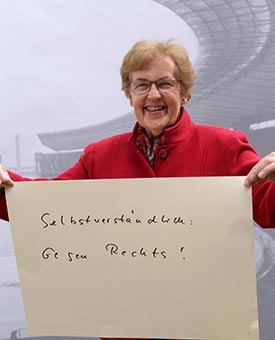 Selbstverständlich:
Gegen Rechts!